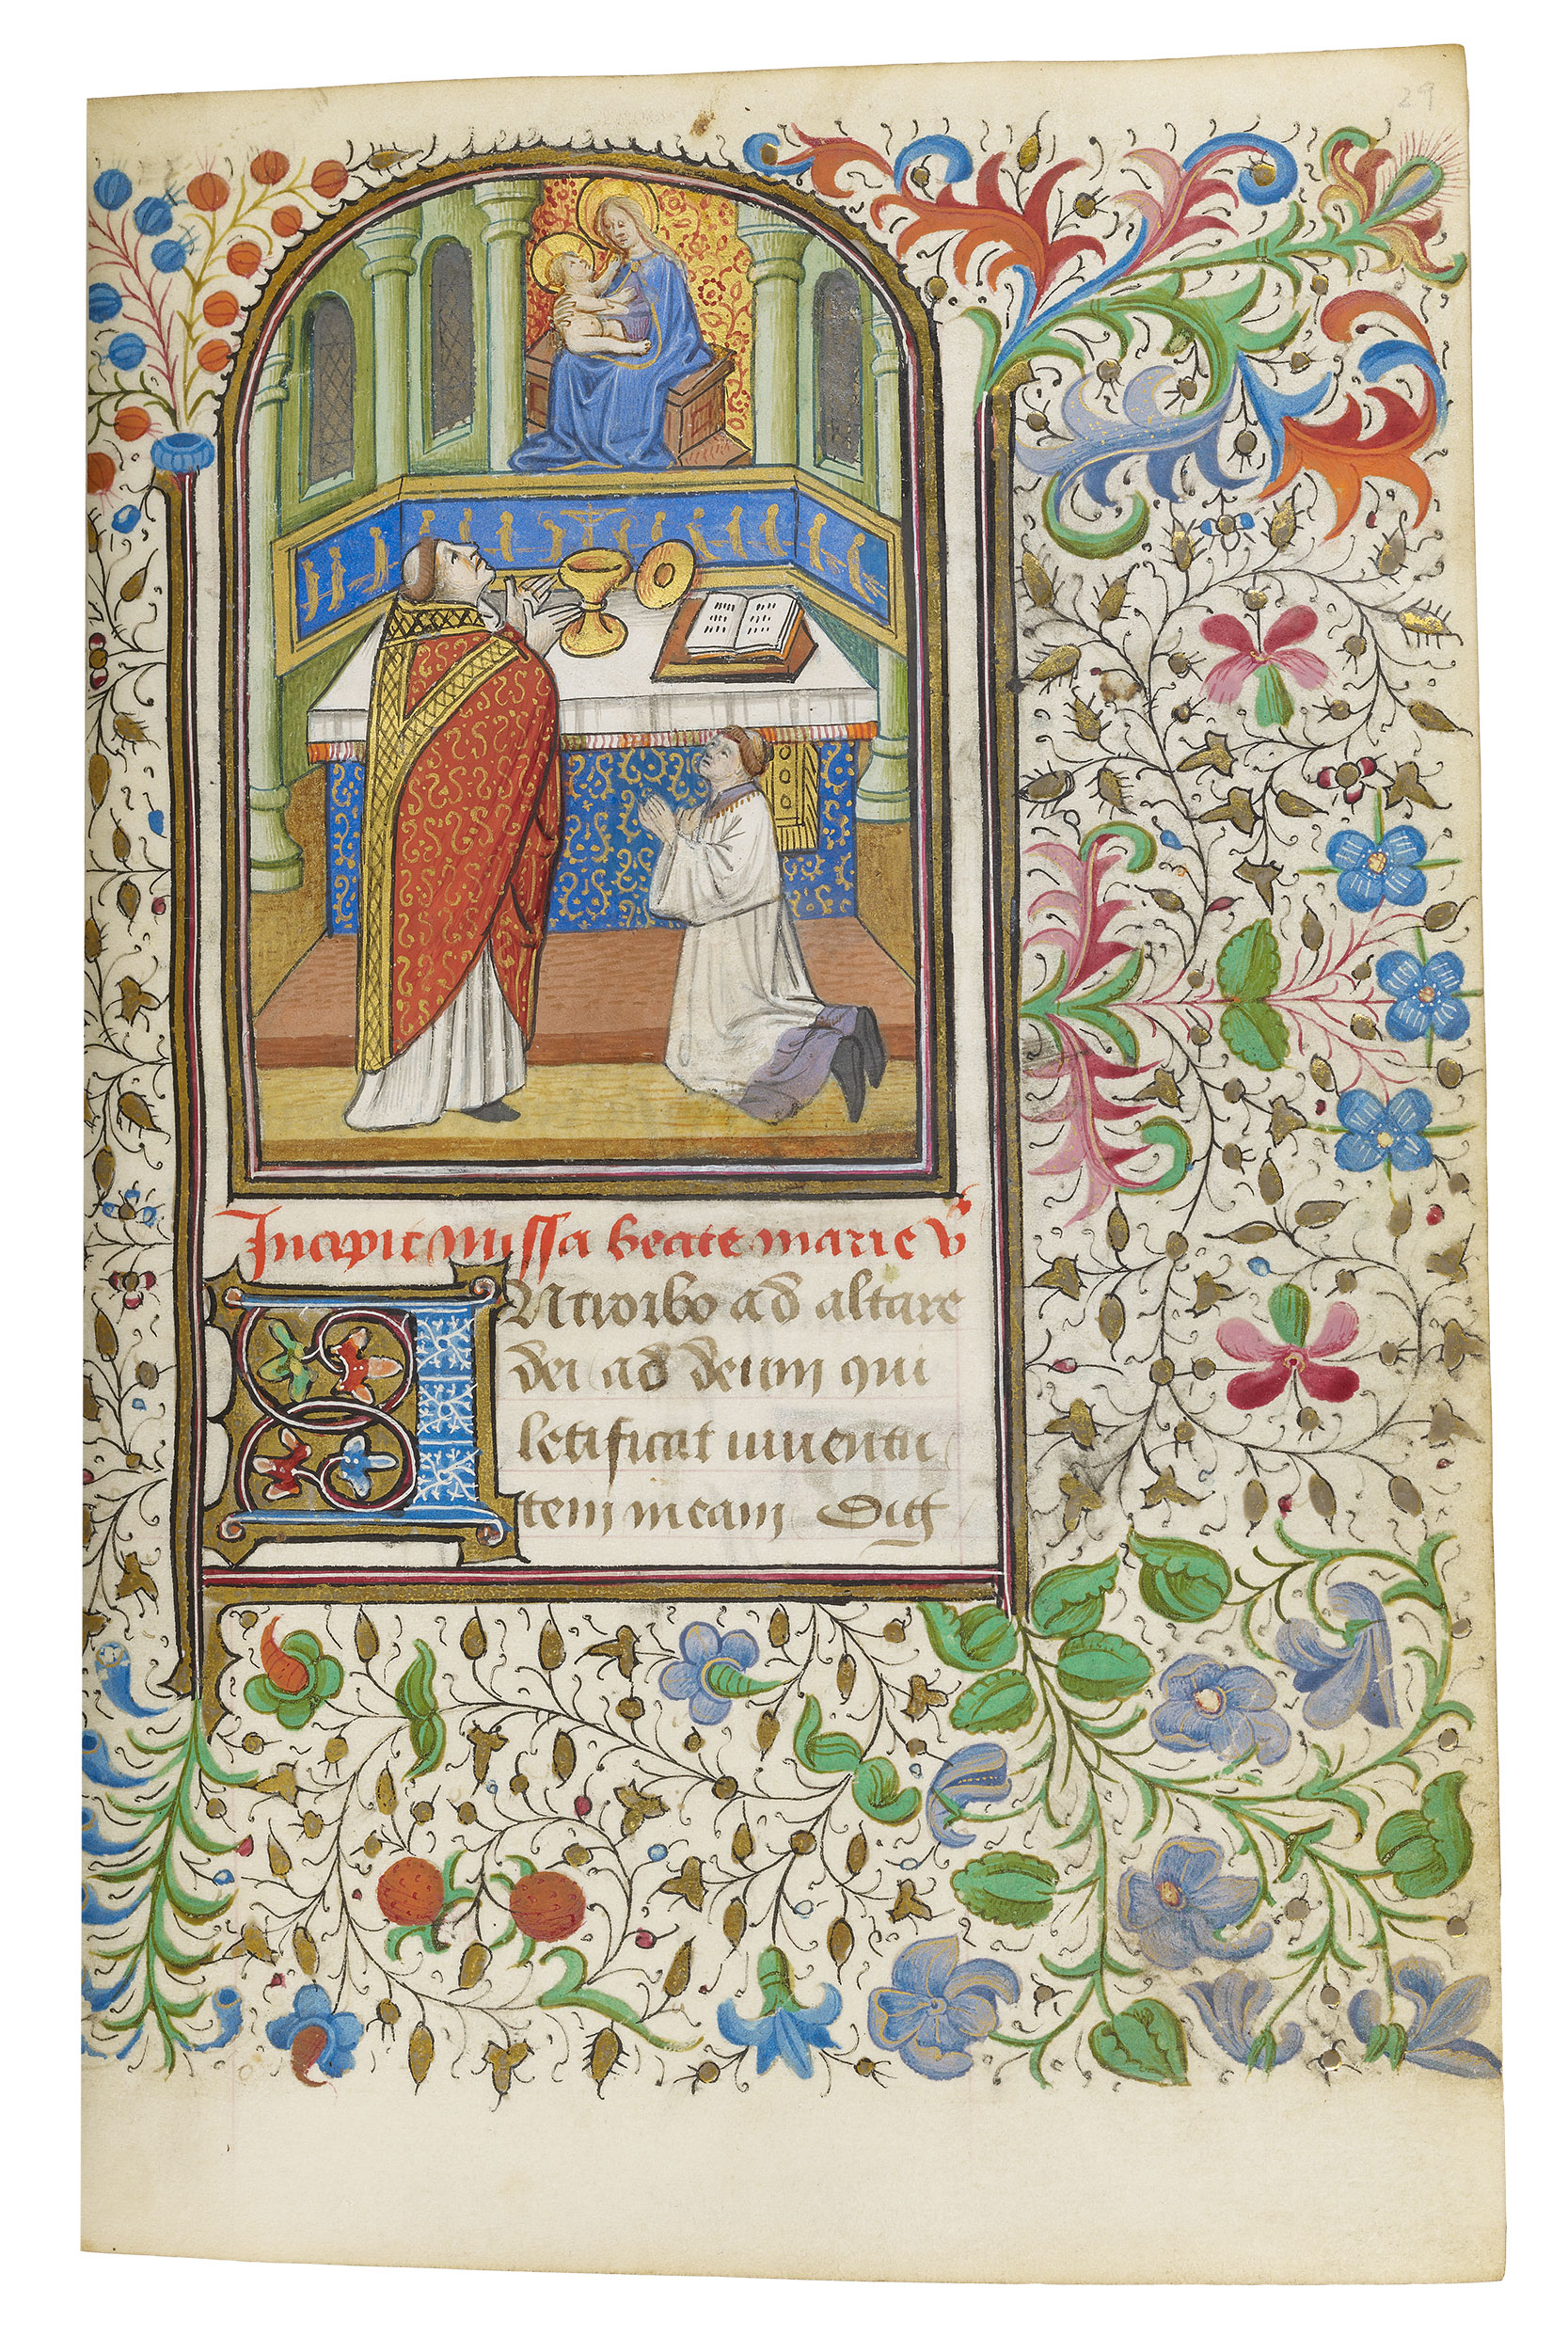 29
Incipit missa beate marie v
INtroibo ad altare
dei ad deum qui
letificat iuuentu
tem meam